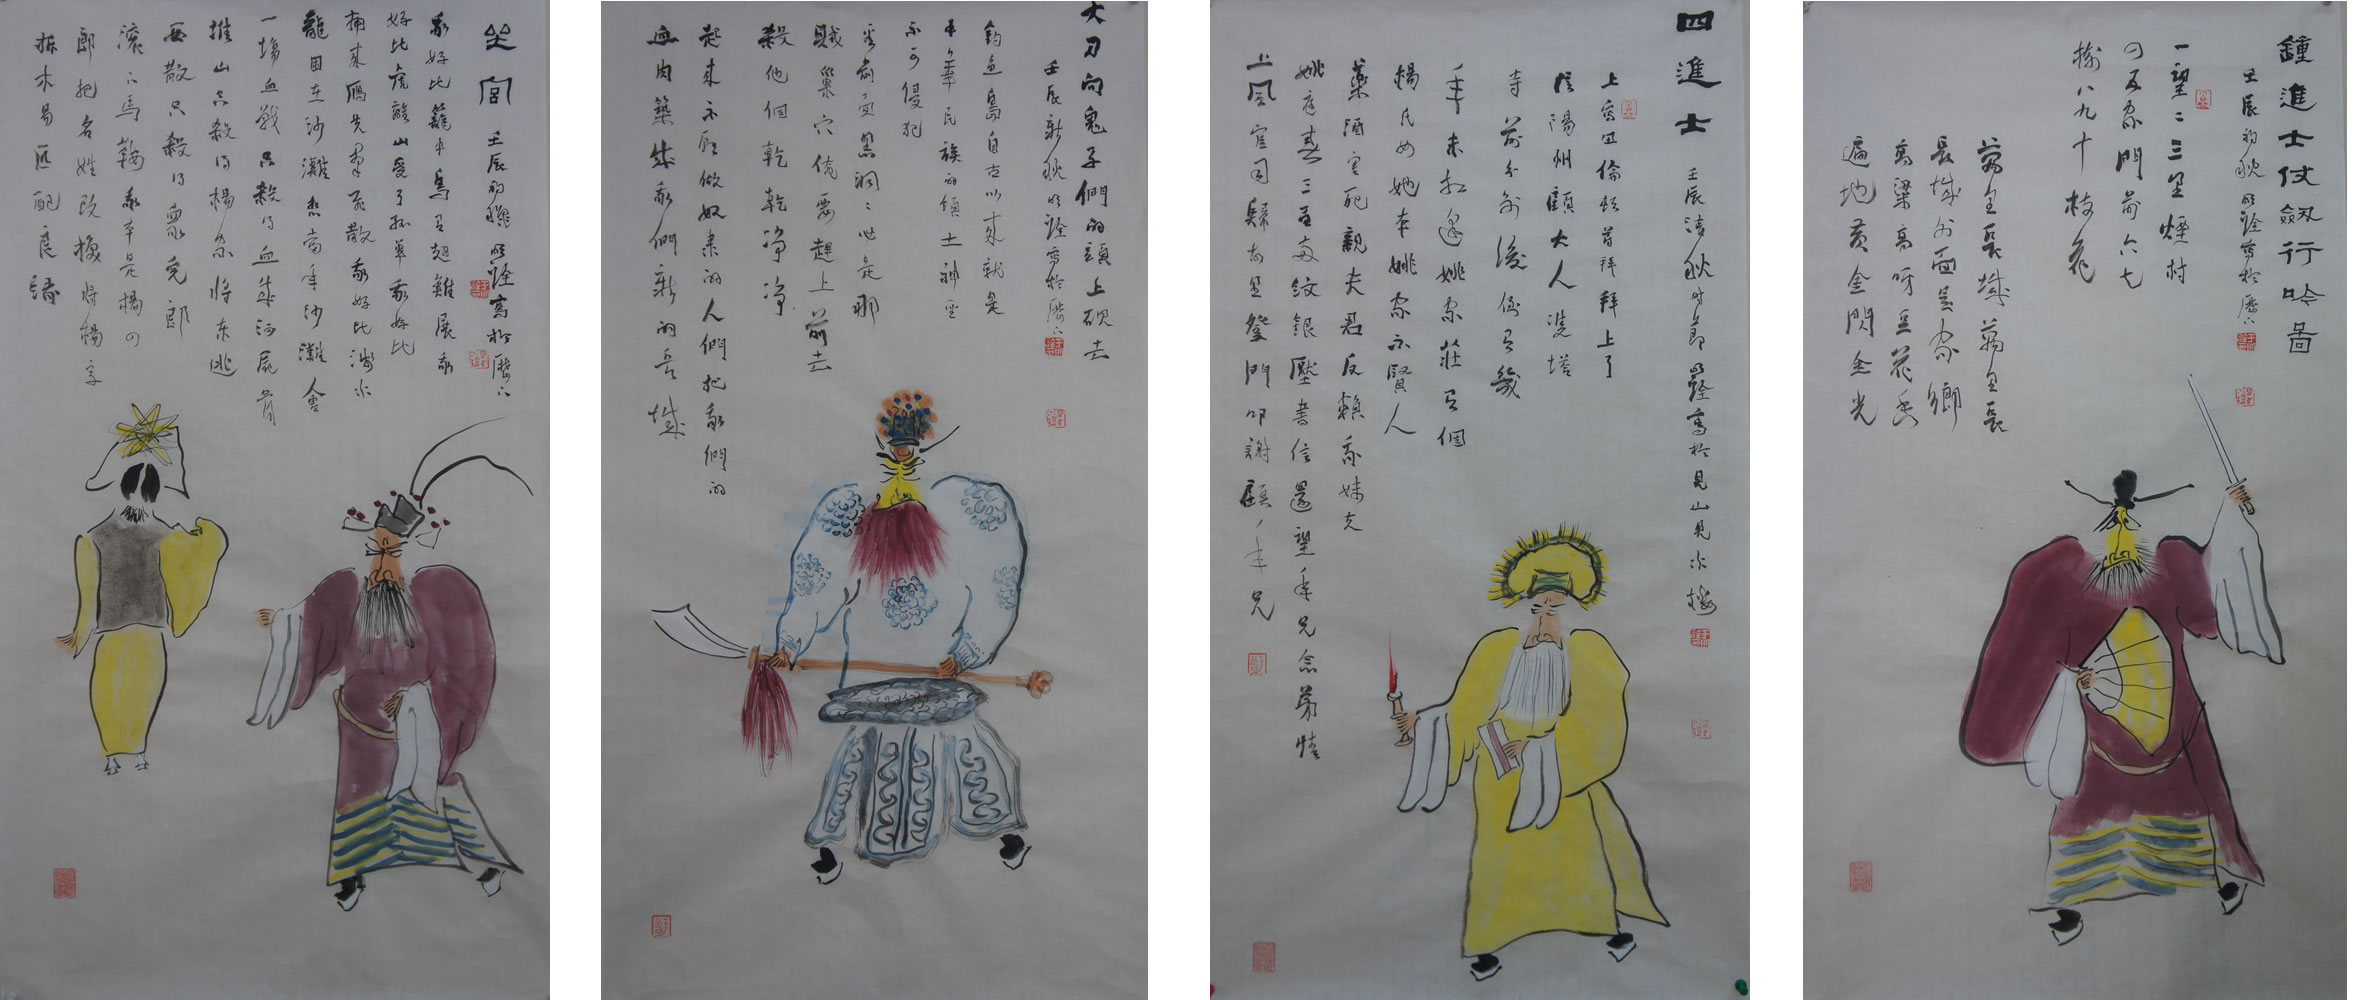 坐宮 壬辰初秋 明詮寫於歷下
我好比籠中鳥有翅難展我
好比虎離山受了孤單我好比
南來雁失羣飛散我好比淺水
龍困在沙灘想當年沙灘會
一場血戰只殺得血成河屍骨
堆山只殺得楊家將東逃
西散只殺得衆兒郎
滾滾馬鞍我本是楊四
郎把名姓改換將楊字
拆木易匹配良緣
大刀向鬼子們的頭上砍去
壬辰新秋明詮寫於歷下
釣魚島自古以來就是
中華民族的領土神聖
不可侵犯
看前面黑洞洞必是那
賊巢穴俺要趕上前去
殺他個乾乾淨淨
起來不願做奴隸的人們把我們的
血肉築成我們新的長城
四進士 壬辰清秋時節 明詮寫於見山見水樓
上寫田倫頓首拜拜上了
信陽州顧大人洗塔
寺前分別後倏有幾
年未相逢姚家莊有個
楊氏女她本姚家不賢人
藥酒害死親夫君反賴我妹充
姚庭春三百兩紋銀壓書信還望年兄念弟情
上風官司歸故里登門叩謝顧年兄
鍾進士仗劔行吟圖
壬辰初秋明詮寫於歷下
一望二三里煙村
四五家門前六七
樹八九十枝花
萬里長城萬里長
長城外面是家鄉
高粱高呀豆花香
遍地黃金閃金光